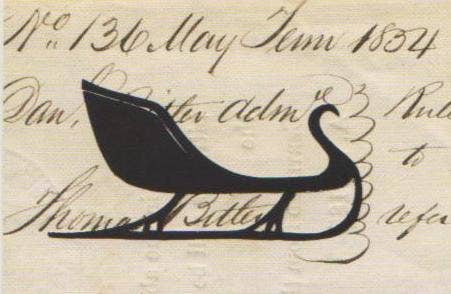 No. 136 May Term 1834
Dan. Bitler admr Rule
to
Thomas Bitler refer